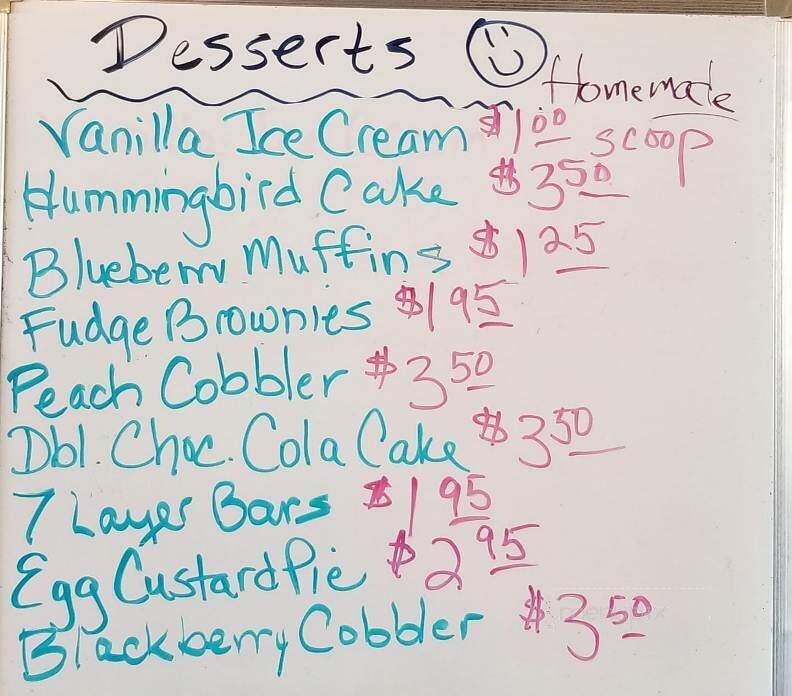 Desserts
Homemade
Vanilla Ice Cream $1.00 scoop
Hummingbird Cake $3.50
Blueberry Muffins $1.25
Fudge Brownies $1.95
Peach Cobbler $3.50
Dbl. Choc. Cola Cake $3.50
7 Layer Bars $1.95
Egg Custard Pie $2.95
Blackberry Cobbler $3.50